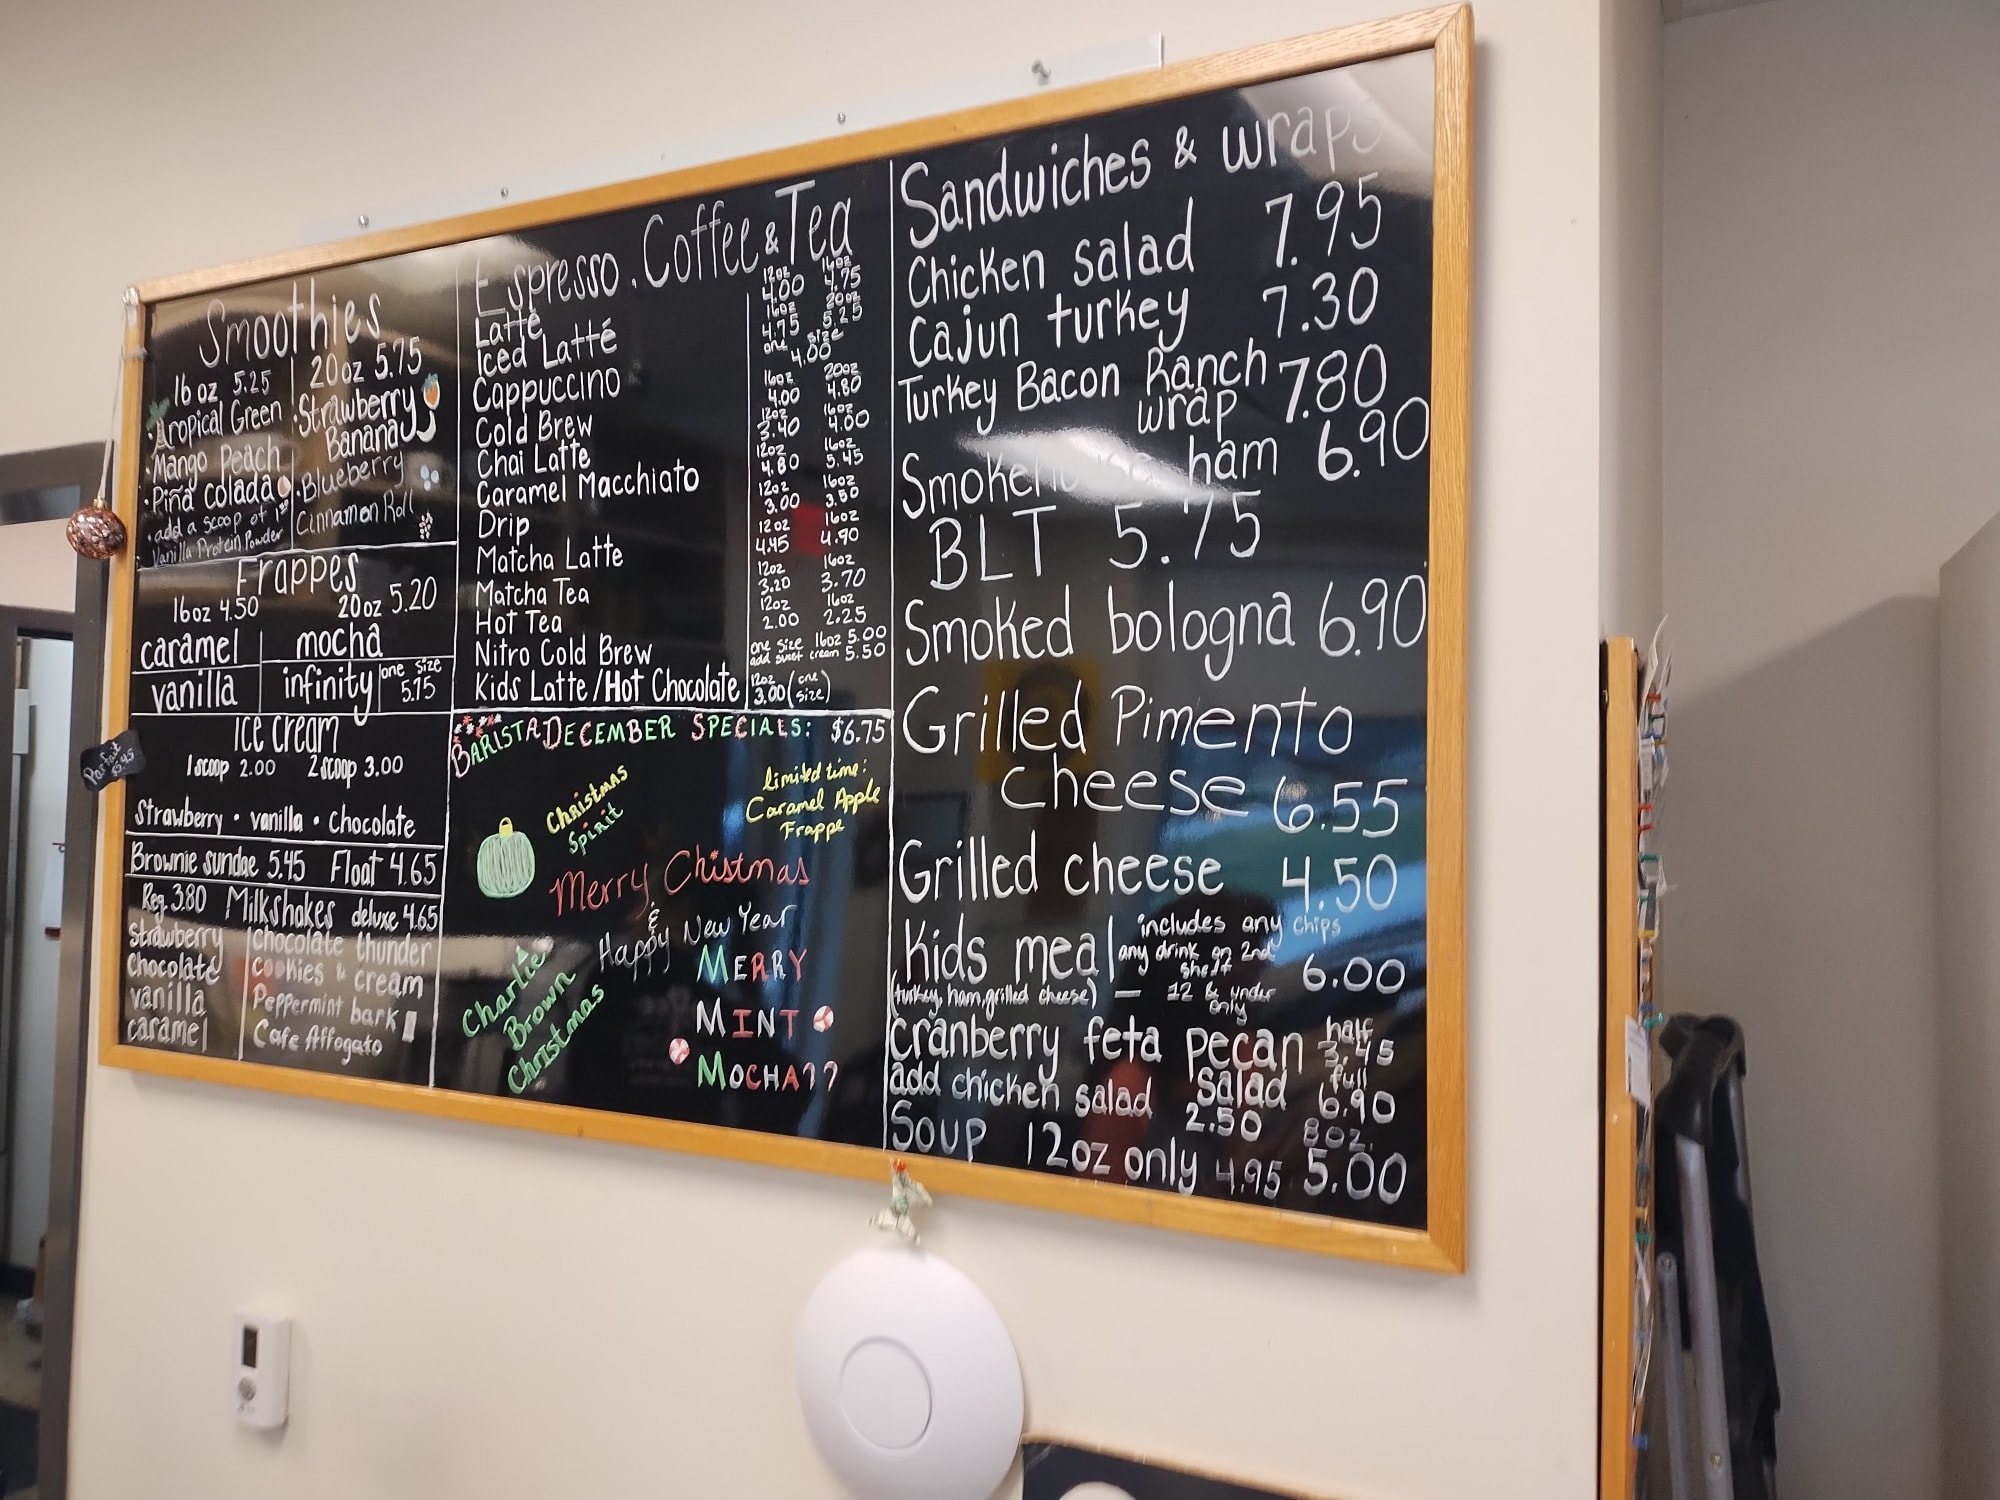 Smoothies
16oz 5.25
20oz 5.75
• Tropical Green
• Mango Peach
• Piña colada
• add a scoop of
Vanilla Protein Powder
• Strawberry
Banana
• Blueberry
Cinnamon Roll
Frappes
16oz 4.50 20oz 5.20
caramel mocha
vanilla infinity one size
5.15
Ice cream
1 scoop 2.00 2 scoop 3.00
Strawberry • vanilla • chocolate
Brownie sundae 5.45 Float 4.65
Reg 3.80 Milkshakes deluxe 4.65
Strawberry
chocolate
vanilla
caramel
chocolate thunder
cookies & cream
Peppermint bark
Cafe Affogato
Parfait
Espresso. Coffee & Tea
12oz 16oz
Latte 4.00 4.75
16oz 20oz
Iced Latté 4.75 5.25
one size
Cappuccino 4.00
16oz 20oz
Cold Brew 4.00 4.80
12oz 16oz
Chai Latte 3.40 4.00
12oz 16oz
Caramel Macchiato 4.80 5.45
12oz 16oz
Drip 3.00 3.50
12oz 16oz
Matcha Latte 4.45 4.90
12oz 16oz
Matcha Tea 3.20 3.70
12oz 16oz
Hot Tea 2.00 2.25
Nitro Cold Brew one size 16oz 5.00
add sweet cream 5.50
Kids Latte/Hot Chocolate 12oz 3.00 (one size)
BARISTA DECEMBER SPECIALS: $6.75
Christmas
Spirit
limited time:
Caramel Apple
Frappe
Merry Chistmas
&
Happy New Year
Charlie
Brown
Christmas
MERRY
MINT
MOCHA??
Sandwiches & wraps
Chicken salad 7.95
Cajun turkey 7.30
Turkey Bacon Ranch
wrap 7.80
ham 6.90
BLT 5.75
Smoked bologna 6.90
Grilled Pimento
cheese 6.55
Grilled cheese 4.50
Kids meal includes any chips
any drink on 2nd
shelf 6.00
(turkey, ham, grilled cheese) — 12 & under
only
Cranberry feta pecan half
salad 3.45
full
6.90
add chicken salad 2.50
8oz.
Soup 12oz only 4.95 5.00